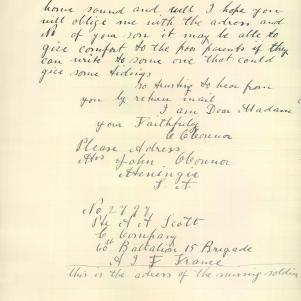 home sound and well I hope you
will oblige me with the adress and
No of you son it may be able to
give comfort to the poor parents if they
can write to some one that could
give some tidings
so trusting to hear from
you by return mail
I am Dear Madame
your Faithfully
C OConnor
Please Adress
Mrs John OConnor
Meningie
S A
No 2798
Pte A A Scott
C Company
60th Battalion 15 Brigade
A I F France
this is the adress of the missing soldier